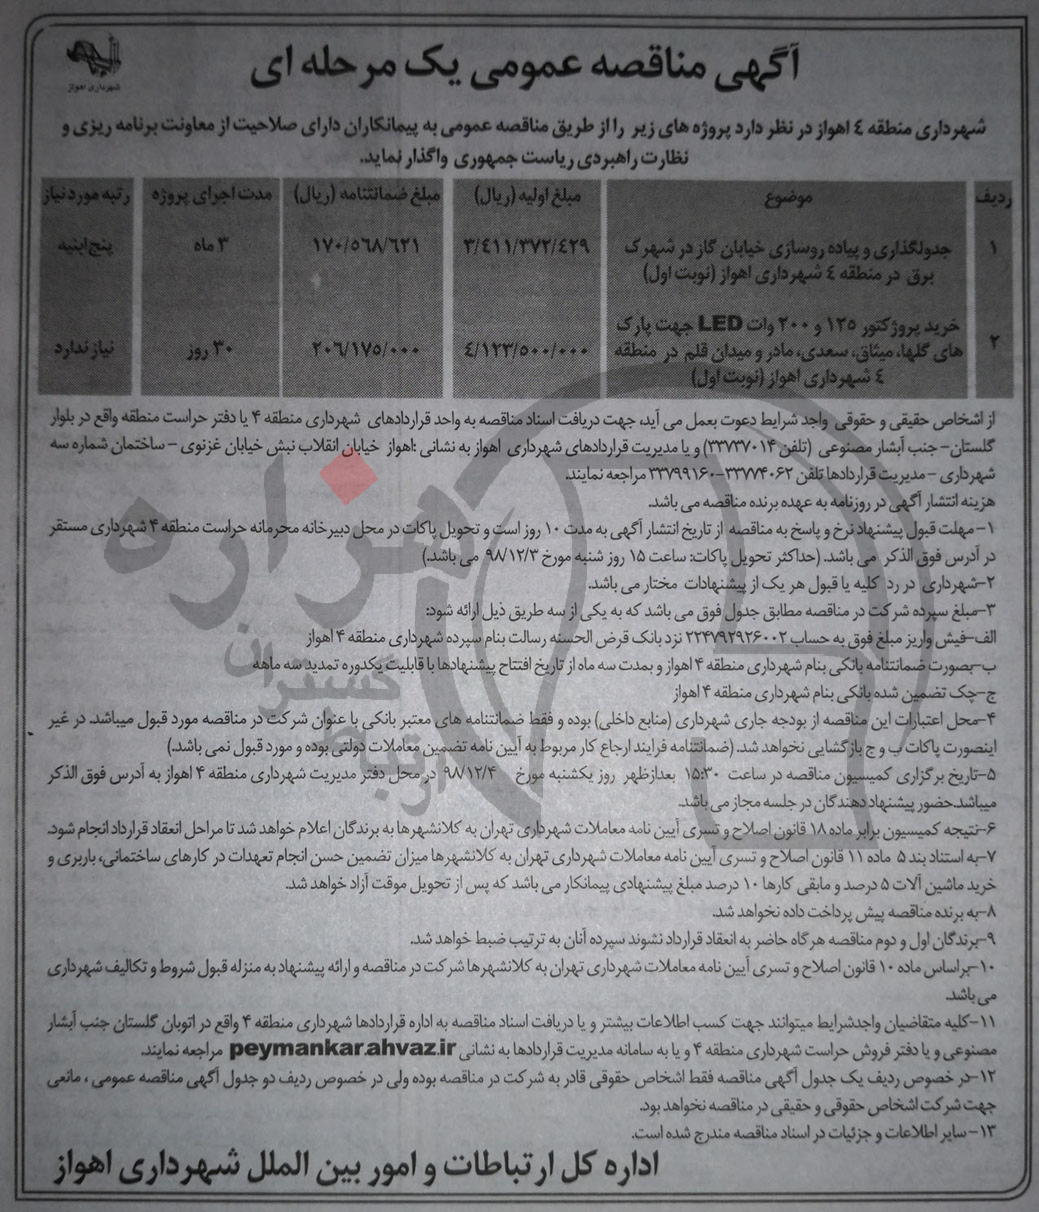 آگهی مناقصه عمومی یک مرحله ای
شهرداری اهواز
شهرداری منطقه ٤ اهواز در نظر دارد پروژه های زیر را از طریق مناقصه عمومی به پیمانکاران دارای صلاحیت از معاونت برنامه ریزی و
نظارت راهبردی ریاست جمهوری واگذار نماید.
ردیف موضوع مبلغ اولیه (ریال) مبلغ ضمانتنامه (ریال) مدت اجرای پروژه رتبه مورد نیاز
۱ جدولگذاری و پیاده روسازی خیابان گاز در شهرک ۳/٤۱۱/۳۷۲/٤۲۹ ۱۷۰/۵٦۸/٦۲۱ ۳ ماه پنج ابنیه
برق در منطقه ٤ شهرداری اهواز (نوبت اول)
خرید پروژکتور ۱۲۵ و ۲۰۰ وات LED جهت پارک
۲ های گلها، میثاق، سعدی، مادر و میدان قلم در منطقه ٤/۱۲۳/۵۰۰/۰۰۰ ۲۰٦/۱۷۵/۰۰۰ ۳۰ روز نیاز ندارد
٤ شهرداری اهواز (نوبت اول)
از اشخاص حقیقی و حقوقی واجد شرایط دعوت بعمل می آید، جهت دریافت اسناد مناقصه به واحد قراردادهای شهرداری منطقه ۴ یا دفتر حراست منطقه واقع در بلوار
گلستان- جنب آبشار مصنوعی (تلفن ۳۳۷۳۷۰۱۴) و یا مدیریت قراردادهای شهرداری اهواز به نشانی :اهواز خیابان انقلاب نبش خیابان غزنوی - ساختمان شماره سه
شهرداری - مدیریت قراردادها تلفن ۳۳۷۷۴۰۶۲-۳۳۷۹۹۱۶۰ مراجعه نمایند.
هزینه انتشار آگهی در روزنامه به عهده برنده مناقصه می باشد.
۱-مهلت قبول پیشنهاد نرخ و پاسخ به مناقصه از تاریخ انتشار آگهی به مدت ۱۰ روز است و تحویل پاکات در محل دبیرخانه محرمانه حراست منطقه ۴ شهرداری مستقر
در آدرس فوق الذکر می باشد. (حداکثر تحویل پاکات: ساعت ۱۵ روز شنبه مورخ ۹۸/۱۲/۳ می باشد.)
۲-شهرداری در رد کلیه یا قبول هر یک از پیشنهادات مختار می باشد.
۳-مبلغ سپرده شرکت در مناقصه مطابق جدول فوق می باشد که به یکی از سه طریق ذیل ارائه شود:
الف-فیش واریز مبلغ فوق به حساب ۲۲۴۷۹۲۹۲۶۰۰۲ نزد بانک قرض الحسنه رسالت بنام سپرده شهرداری منطقه ۴ اهواز
ب-بصورت ضمانتنامه بانکی بنام شهرداری منطقه ۴ اهواز و بمدت سه ماه از تاریخ افتتاح پیشنهادها با قابلیت یکدوره تمدید سه ماهه
ج-چک تضمین شده بانکی بنام شهرداری منطقه ۴ اهواز
۴-محل اعتبارات این مناقصه از بودجه جاری شهرداری (منابع داخلی) بوده و فقط ضمانتنامه های معتبر بانکی با عنوان شرکت در مناقصه مورد قبول میباشد. در غیر
اینصورت پاکات ب و ج بازگشایی نخواهد شد. (ضمانتنامه فرایند ارجاع کار مربوط به آیین نامه تضمین معاملات دولتی بوده و مورد قبول نمی باشد.)
۵-تاریخ برگزاری کمیسیون مناقصه در ساعت ۱۵:۳۰ بعدازظهر روز یکشنبه مورخ ۹۸/۱۲/۴ در محل دفتر مدیریت شهرداری منطقه ۴ اهواز به آدرس فوق الذکر
میباشد.حضور پیشنهاد دهندگان در جلسه مجاز می باشد.
۶-نتیجه کمیسیون برابر ماده ۱۸ قانون اصلاح و تسری آیین نامه معاملات شهرداری تهران به کلانشهرها به برندگان اعلام خواهد شد تا مراحل انعقاد قرارداد انجام شود.
۷-به استناد بند ۵ ماده ۱۱ قانون اصلاح و تسری آیین نامه معاملات شهرداری تهران به کلانشهرها میزان تضمین حسن انجام تعهدات در کارهای ساختمانی، باربری و
خرید ماشین آلات ۵ درصد و مابقی کارها ۱۰ درصد مبلغ پیشنهادی پیمانکار می باشد که پس از تحویل موقت آزاد خواهد شد.
۸-به برنده مناقصه پیش پرداخت داده نخواهد شد.
۹-برندگان اول و دوم مناقصه هر گاه حاضر به انعقاد قرارداد نشوند سپرده آنان به ترتیب ضبط خواهد شد.
۱۰-براساس ماده ۱۰ قانون اصلاح و تسری آیین نامه معاملات شهرداری تهران به کلانشهرها شرکت در مناقصه و ارائه پیشنهاد به منزله قبول شروط و تکالیف شهرداری
می باشد.
۱۱-کلیه متقاضیان واجدشرایط میتوانند جهت کسب اطلاعات بیشتر و یا دریافت اسناد مناقصه به اداره قراردادها شهرداری منطقه ۴ واقع در اتوبان گلستان جنب آبشار
مصنوعی و یا دفتر فروش حراست شهرداری منطقه ۴ و یا به سامانه مدیریت قراردادها به نشانی peymankar.ahvaz.ir مراجعه نمایند.
۱۲-در خصوص ردیف یک جدول آگهی مناقصه فقط اشخاص حقوقی قادر به شرکت در مناقصه بوده ولی در خصوص ردیف دو جدول آگهی مناقصه عمومی ، مانعی
جهت شرکت اشخاص حقوقی و حقیقی در مناقصه نخواهد بود.
۱۳-سایر اطلاعات و جزئیات در اسناد مناقصه مندرج شده است.
اداره کل ارتباطات و امور بین الملل شهرداری اهواز
هزاره
گستران